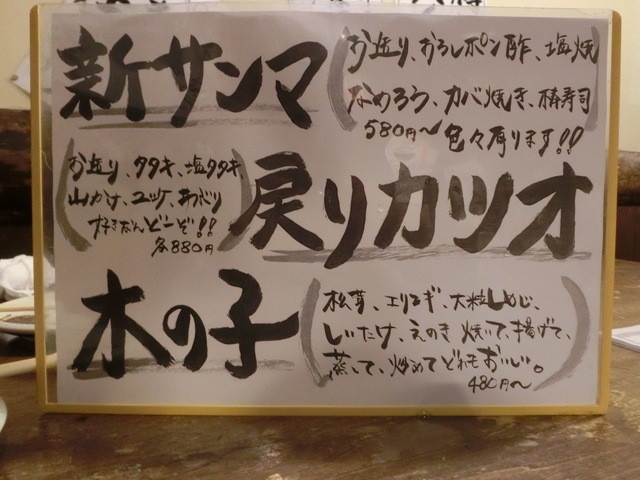 新サンマ
お造り、おろしポン酢、塩焼
なめろう、カバ焼き、棒寿司
580円〜 色々有ります!!
お造り、タタキ、塩タタキ、
山かけ、ユッケ、あぶり
好きなんどーぞ!!
各880円
戻りカツオ
木の子
松茸、エリンギ、大粒しめじ、
しいたけ、えのき 焼いて、揚げて、
蒸して、炒めてどれもおいしい。
480円〜